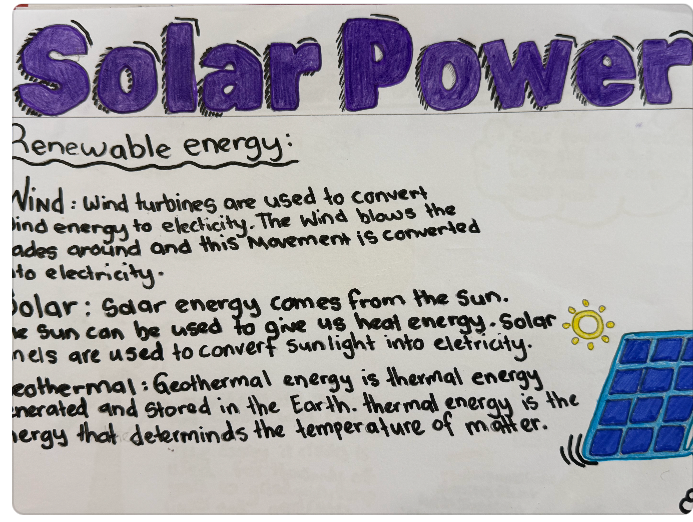 Solar Power
Renewable energy:
Wind: Wind turbines are used to convert
ind energy to electicity. The wind blows the
ades around and this Movement is converted
to electricity.
Solar: Solar energy comes from the sun.
he sun can be used to give us heat energy. Solar
nels are used to convert sunlight into eletricity.
eothermal: Geothermal energy is thermal energy
enerated and stored in the Earth. thermal energy is the
nergy that determinds the temperature of matter.